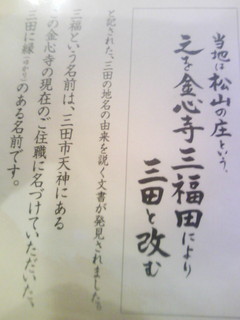 当地は松山の庄という、
之を金心寺三福田により
三田と改む
と記された、三田の地名の由来を説く文書が発見されました。
三福という名前は、三田市天神にある
の金心寺の現在のご住職に名づけていただいた、
三田に縁（ゆかり）のある名前です。